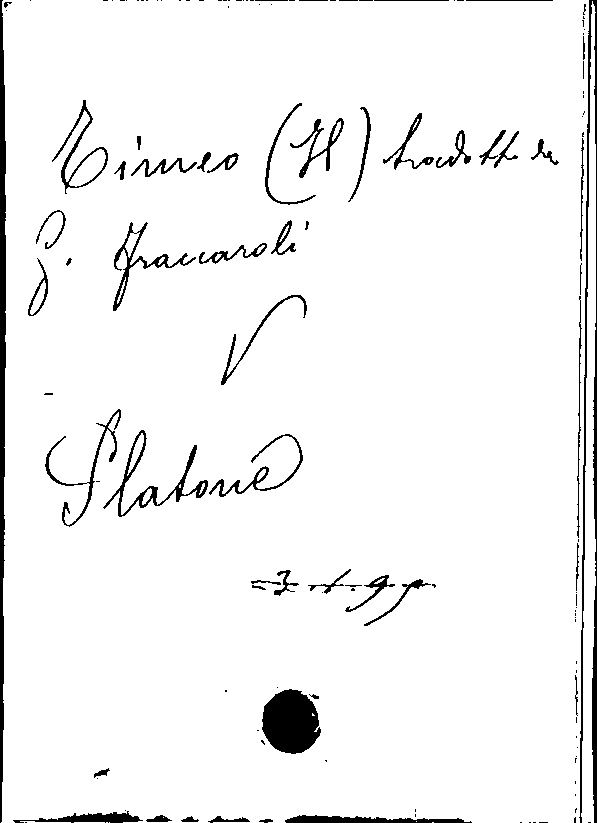 Timeo (Il) tradotto da
G. Fraccaroli
V
Platone